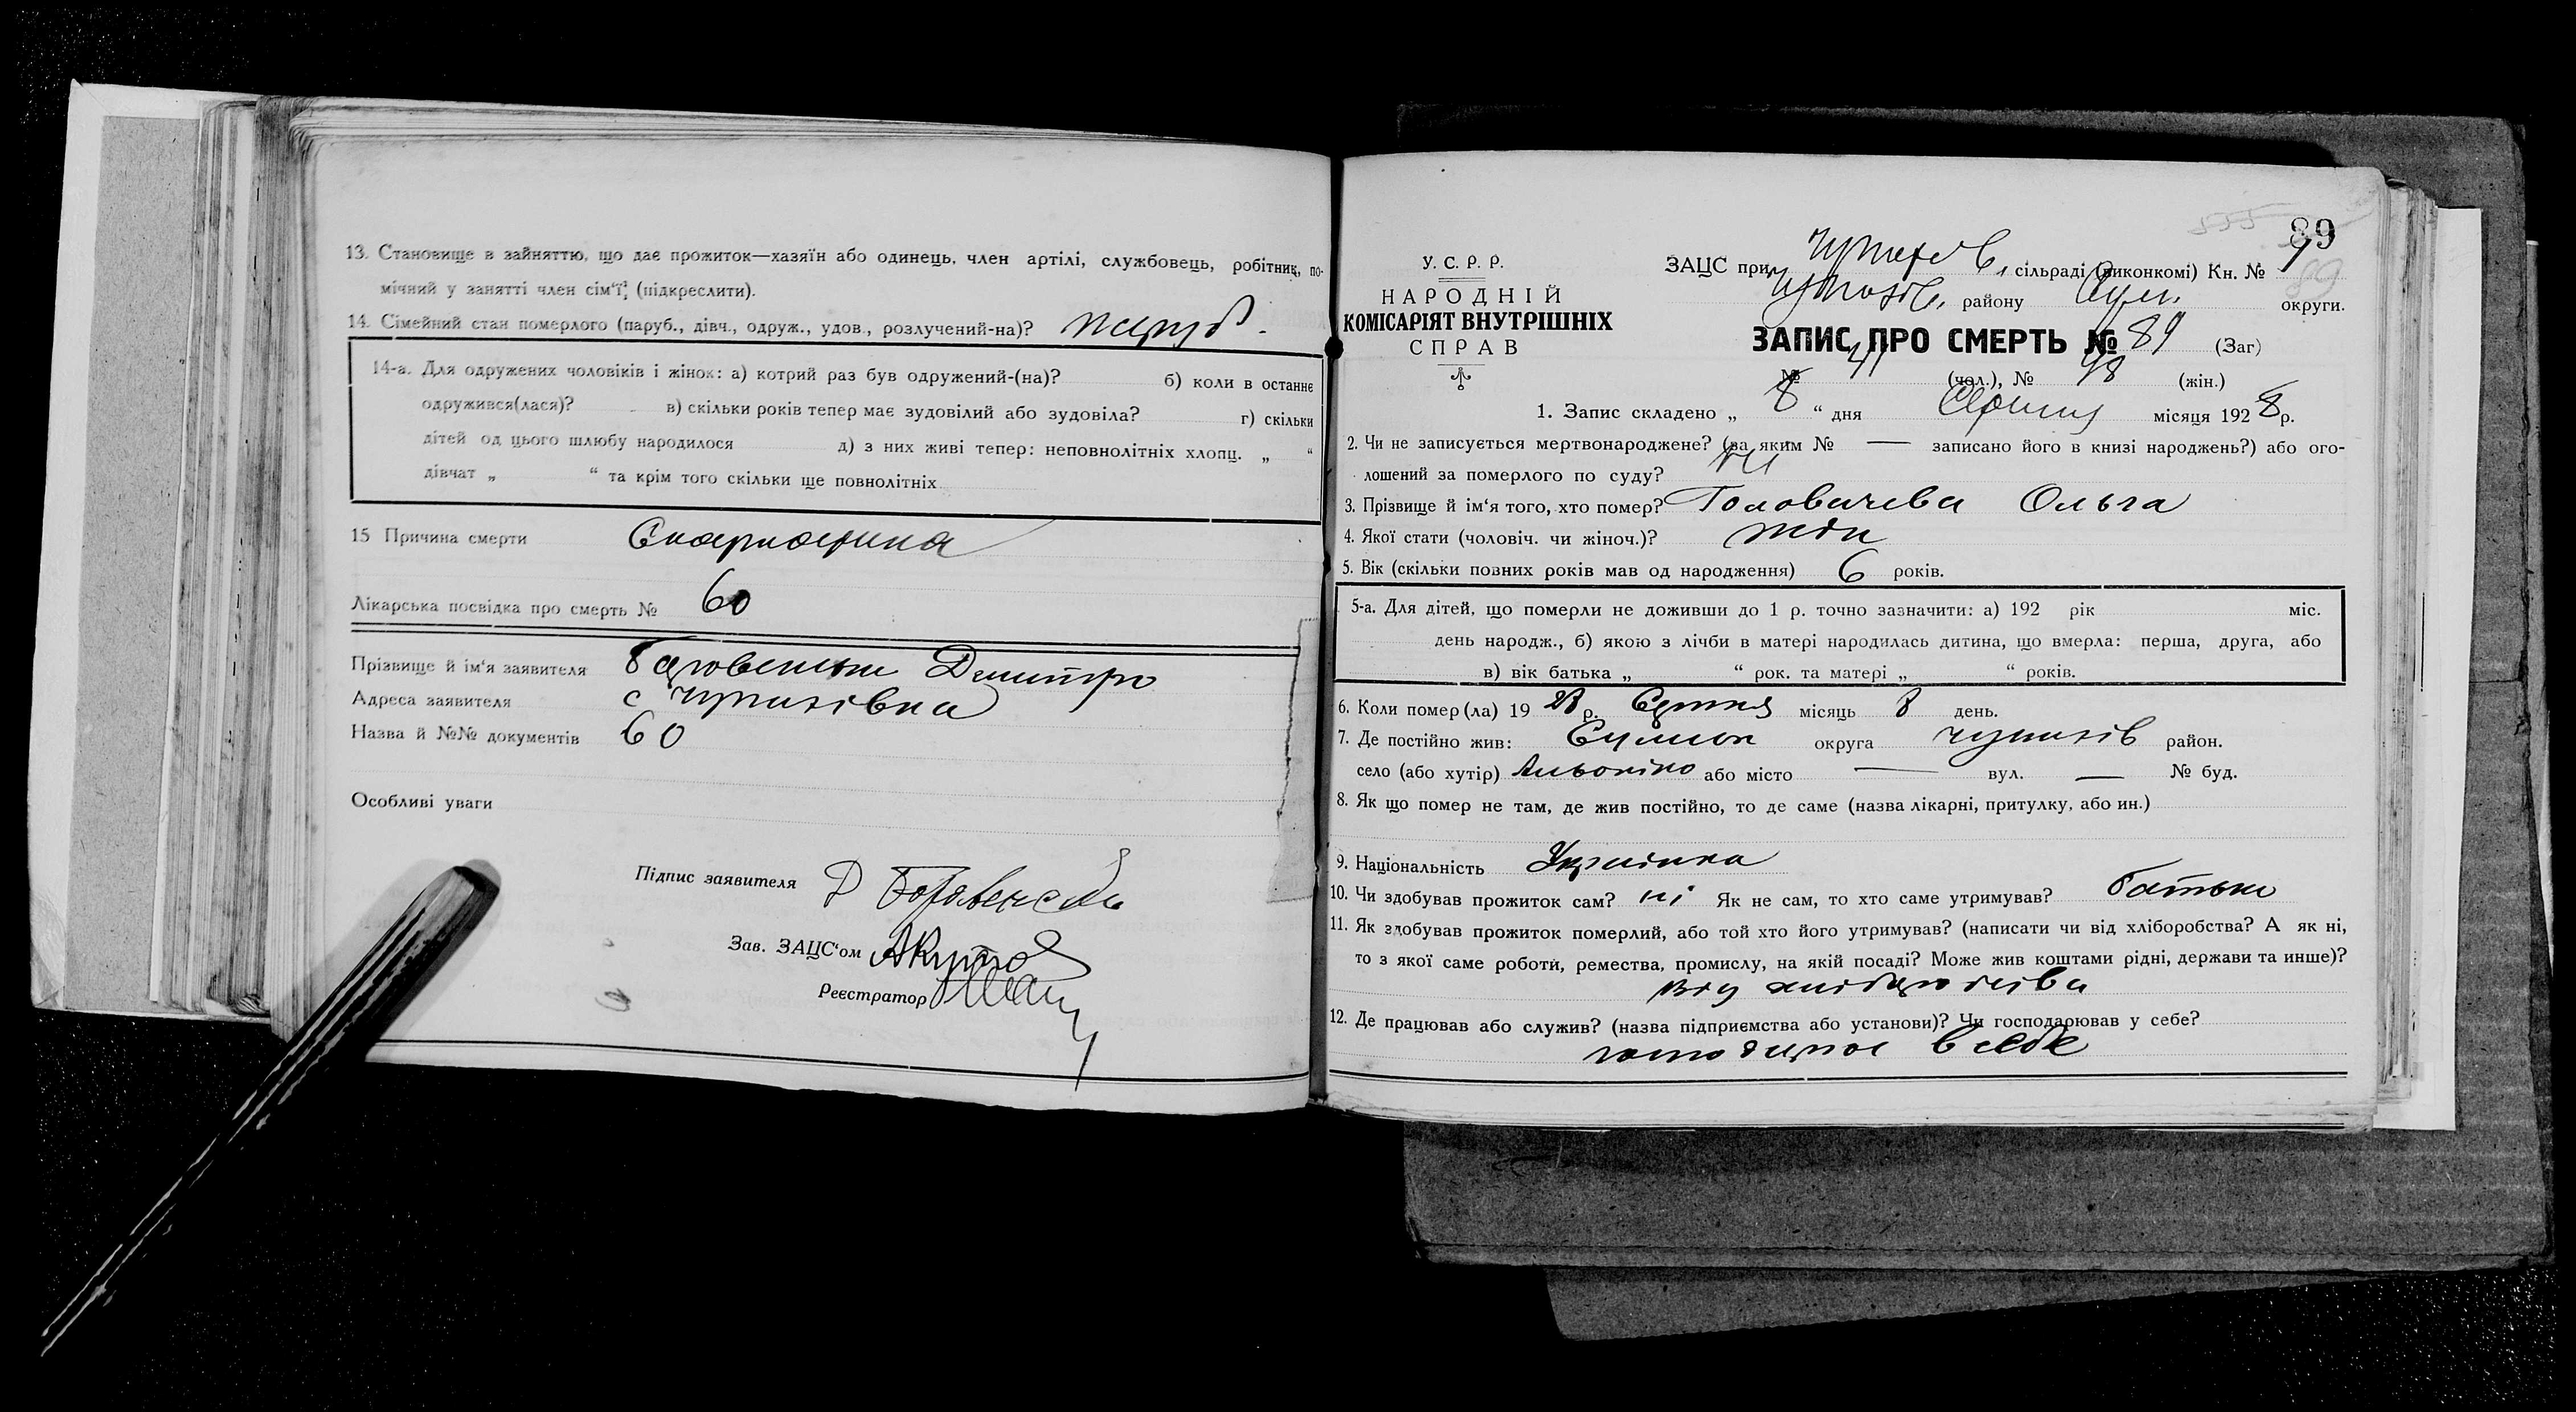 13. Становище в зайняттю, що дає прожиток—хазяїн або одинець, член артілі, службовець, робітник, по-
мічний у занятті член сім'ї, (підкреслити).
14. Сімейний стан померлого (паруб., дівч., одруж., удов., розлучений-на)? паруб.
14-а. Для одружених чоловіків і жінок: а) котрий раз був одружений-(на)? б) коли в останнє
одружився(лася)? в) скільки років тепер має зудовілий або зудовіла? г) скільки
дітей од цього шлюбу народилося д) з них живі тепер: неповнолітніх хлопц. „ “
дівчат „ “ та крім того скільки ще повнолітніх
15 Причина смерти Скарлатина
Лікарська посвідка про смерть № 60
Прізвище й ім'я заявителя Дмитро
Адреса заявителя с Чупахівка
Назва й №№ документів 60
Особливі уваги
Підпис заявителя Д
Зав. ЗАЦС'ом
Реєстратор
89
У. С. Р. Р.
НАРОДНІЙ
КОМІСАРІЯТ ВНУТРІШНІХ
СПРАВ
ЗАЦС при Чупахів. сільраді (виконкомі) Кн. №
Чупахів. району Сум. округи.
ЗАПИС ПРО СМЕРТЬ № 89 (Заг)
№ 41 (чол.), № 48 (жін.)
1. Запис складено „ 8 “ дня Серпня місяця 1928 р.
2. Чи не записується мертвонароджене? (за яким № — записано його в книзі народжень?) або ого-
лошений за померлого по суду? Ні
3. Прізвище й ім'я того, хто помер? Головачева Ольга
4. Якої стати (чоловіч. чи жіноч.)? жін
5. Вік (скільки повних років мав од народження) 6 років.
5-а. Для дітей, що померли не доживши до 1 р. точно зазначити: а) 192 рік міс.
день народж., б) якою з лічби в матері народилась дитина, що вмерла: перша, друга, або
в) вік батька „ “ рок. та матері „ “ років.
6. Коли помер(ла) 1928 р. Серпня місяць 8 день.
7. Де постійно жив: Сумськ округа Чупахів район.
село (або хутір) або місто — вул. — № буд.
8. Як що помер не там, де жив постійно, то де саме (назва лікарні, притулку, або ин.)
9. Національність Українка
10. Чи здобував прожиток сам? ні Як не сам, то хто саме утримував? батьки
11. Як здобував прожиток померлий, або той хто його утримував? (написати чи від хліборобства? А як ні,
то з якої саме роботи, ремества, промислу, на якій посаді? Може жив коштами рідні, держави та инше)?
від хліборобства
12. Де працював або служив? (назва підприємства або установи)? Чи господарював у себе?
господарює в себе